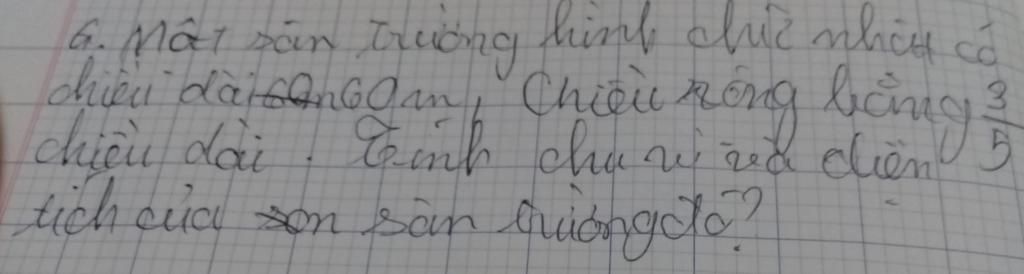 6. Một sân trường hình chữ nhật có
chiều dài 60m, Chiều rộng bằng 3/5
chiều dài. Tính chu vi và diện
tích của sân trường đó?